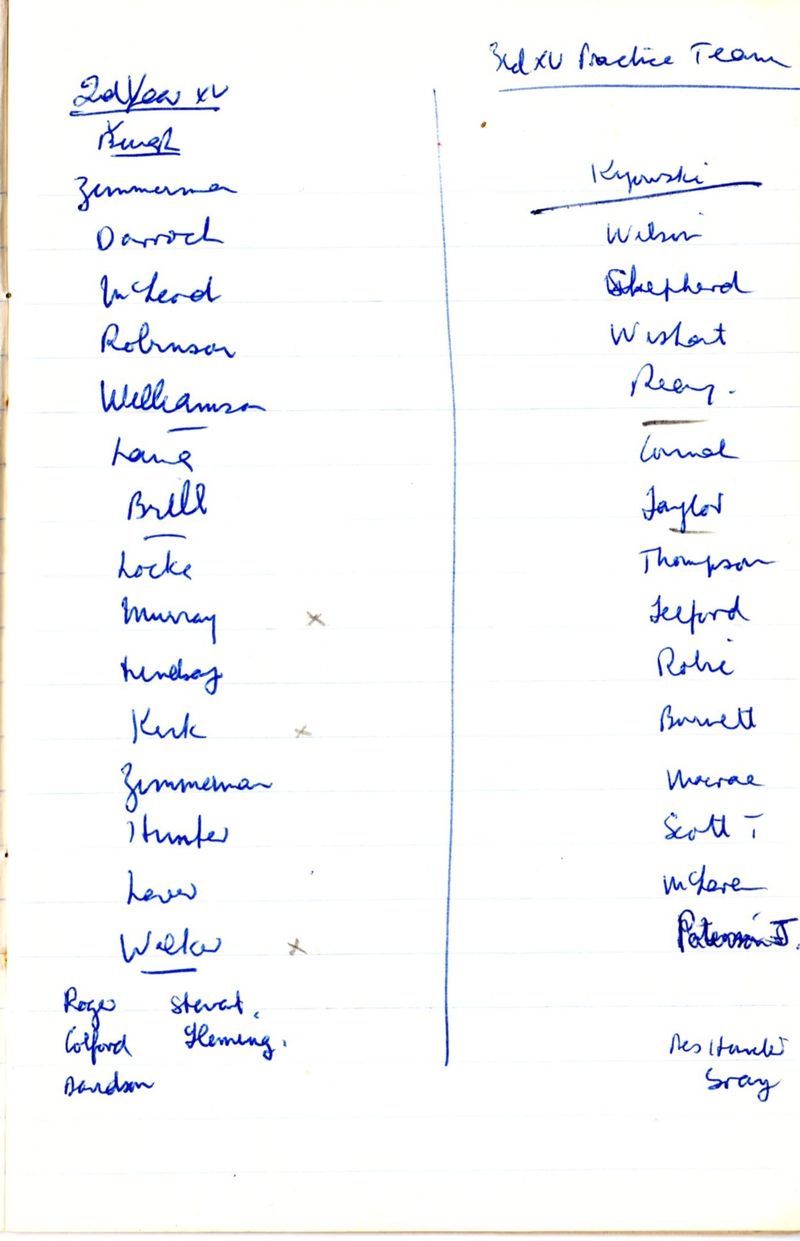 2nd Year XV
Zimmerman
Darroch
McLeod
Robinson
Williamson
Lang
Brill
Locke
Murray x
Lindsay
Kirk x
Zimmerman
Hunter
Laver
Walker x
Roger Stewart.
Colford Fleming.
Davidson
3rd XV Practice Team
Kyowski
Wilson
Shepherd
Wishart
Reay.
Taylor
Thompson
Telford
Robie
Burnett
Macrae
Scott T
McLaren
Paterson J.
Res Hunter
Gray